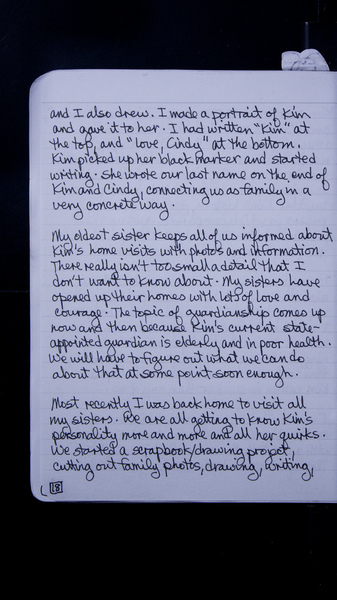 and I also drew. I made a portrait of Kim
and gave it to her. I had written "Kim" at
the top, and "love, Cindy" at the bottom.
Kim picked up her black marker and started
writing. She wrote our last name on the end of
Kim and Cindy, connecting us as family in a
very concrete way.
My oldest sister keeps all of us informed about
Kim's home visits with photos and information.
There really isn't too small a detail that I
don't want to know about. My sisters have
opened up their homes with lots of love and
courage. The topic of guardianship comes up
now and then because Kim's current state-
appointed guardian is elderly and in poor health.
We will have to figure out what we can do
about that at some point soon enough.
Most recently I was back home to visit all
my sisters. We are all getting to know Kim's
personality more and more and all her quirks.
We started a scrapbook/drawing project,
cutting out family photos, drawing, writing,
18